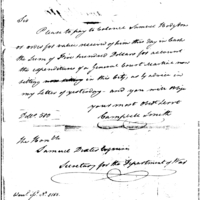 Sir
Please to pay to Colonel Samuel Hodgdon
or order for value received of him this day in Cash
the Sum of Five hundred Dollars for account
the expenditures of a General Court Martial now
sitting in this City, as by advice in
my letter of yesterday. and you will oblige
your most Obdt Servt
Campbell Smith
Dolls. 500
The Honble
Samuel Dexter Esquire
Secretary for the Department of War